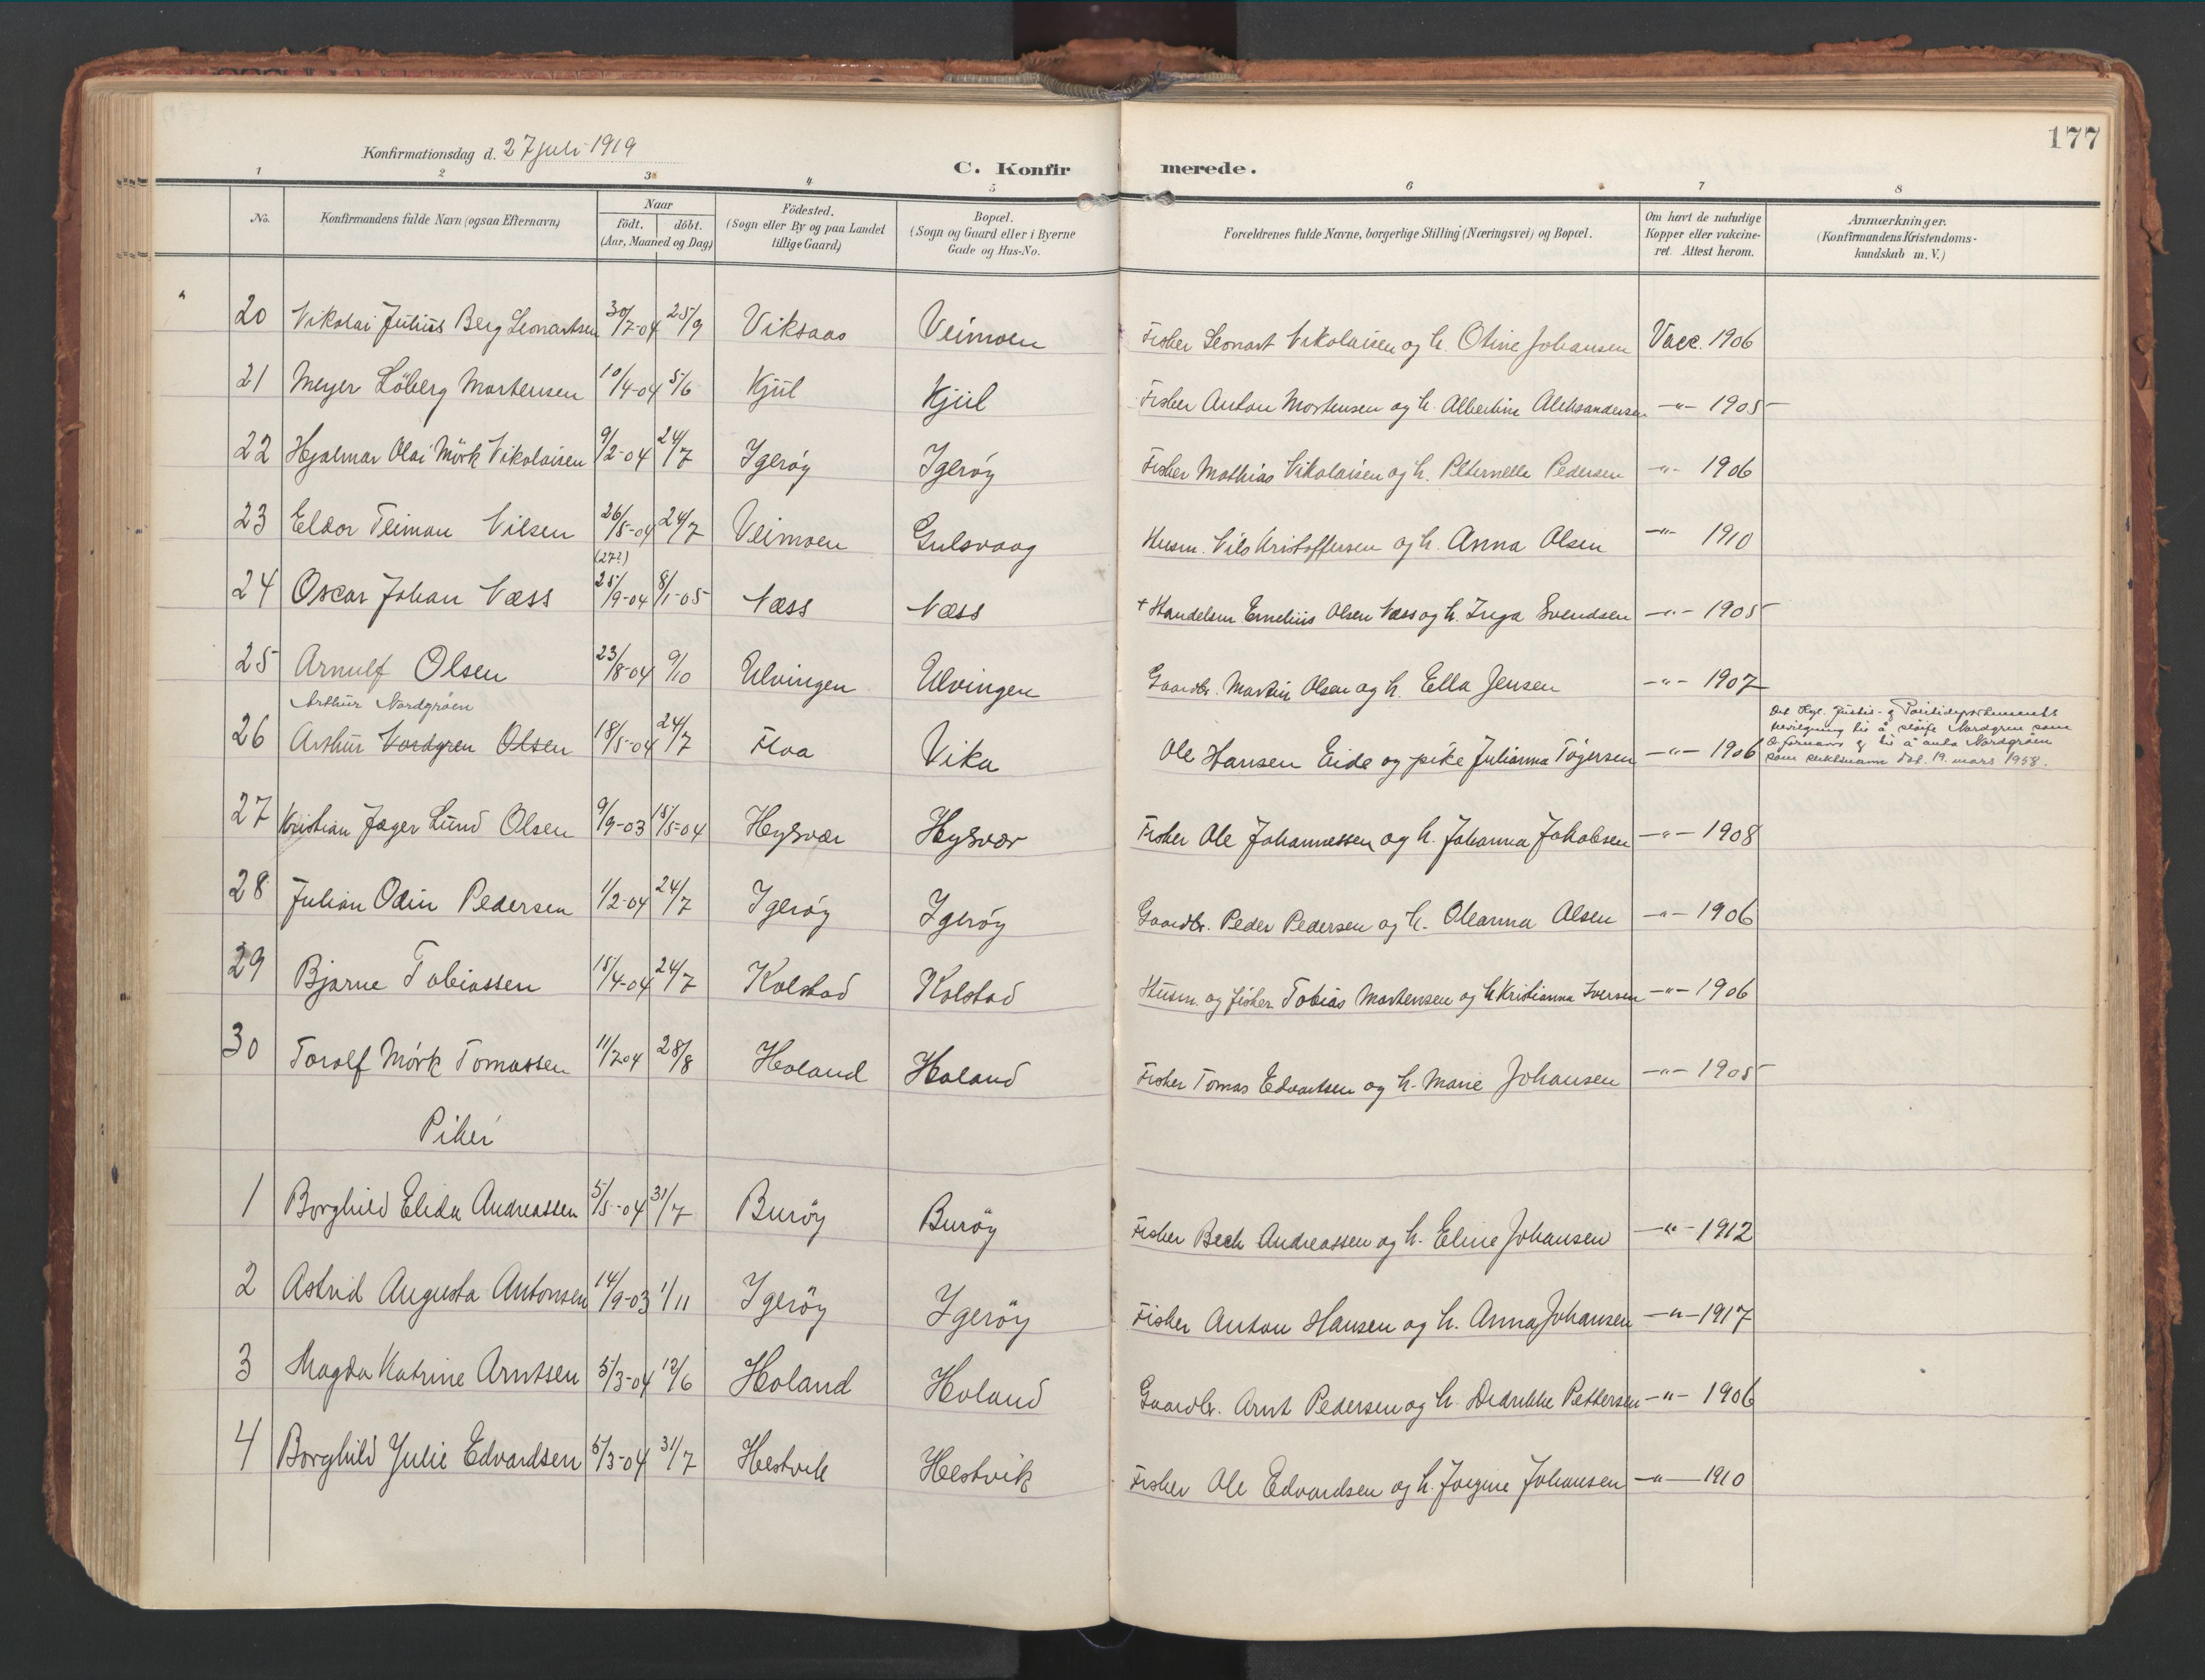 177
Konfirmationsdag d. 27 juli 1919
C. Konfirmerede.
1 2 3 4 5 6 7 8
No.
Konfirmandens fulde Navn (ogsaa Efternavn)
Naar
födt. döbt.
(Aar, Maaned og Dag)
Födested.
(Sogn eller By og paa Landet
tillige Gaard)
Bopæl.
(Sogn og Gaard eller i Byerne
Gade og Hus-No.
Forældrenes fulde Navne, borgerlige Stilling (Næringsvei) og Bopæl.
Om havt de naturlige
Kopper eller vakcine-
ret. Attest herom.
Anmærkninger.
(Konfirmandens Kristendoms-
kundskab m. V.)
20 Nikolai Julius Berg Leonartsen 30/7-04 25/9 Viksaas Veimoen Fisker Leonart Nikolaisen og h. Otine Johansen Vacc. 1906
21 Meyer Löberg Mortensen 10/4-04 5/6 Kjül Kjül Fisker Anton Mortensen og h. Albertine Aleksandersen -"- 1905
22 Hjalmar Olai Mörk Nikolaisen 9/2-04 24/7 Igeröy Igeröy Fisker Mathias Nikolaisen og h. Petternelle Pedersen -"- 1906
23 Eldor Teiman Nilsen 26/5-04 24/7 Veimoen Gulsvaag Husm. Nils Kristoffersen og h. Anna Olsen -"- 1910
(27?)
24 Oscar Johan Næss 25/9-04 8/1-05 Næss Næss + Handelsm Emelius Olsen Næss og h. Inga Svendsen -"- 1905
25 Arnulf Olsen 23/8-04 9/10 Ulvingen Ulvingen Gaardbr. Martin Olsen og h. Ella Jensen -"- 1907
Arthur Nordgröen
26 Arthur Nordgren Olsen 18/5-04 24/7 Floa Vika Ole Hansen Eide og pike Julianna Tögersen -"- 1906
Det Kgl. Justis- og Politidepartements
bevilgning til å sløife Nordgren som
fornavn og til å anta Nordgröen
som slektsnavn dat. 19. mars 1958.
27 Kristian Jæger Lund Olsen 9/9-03 15/5-04 Heysvær Heysvær Fisker Ole Johannessen og h. Johanna Jakobsen -"- 1908
28 Julian Odin Pedersen 1/2-04 24/7 Igeröy Igeröy Gaardbr. Peder Pedersen og h. Oleanna Olsen -"- 1906
29 Bjarne Tobiassen 15/4-04 24/7 Kolstad Kolstad Husm. og fisker Tobias Mortensen og h Kristianna Iversen -"- 1906
30 Torolf Mörk Tomassen 11/7 04 28/8 Holand Holand Fisker Tomas Edvartsen og h. Marie Johansen -"- 1905
Piker
1 Borghild Elida Andreassen 5/5-04 31/7 Buröy Buröy Fisker Bech Andreassen og h. Eline Johansen -"- 1912
2 Astrid Augusta Antonsen 14/9-03 1/11 Igeröy Igeröy Fisker Anton Hansen og h. Anna Johansen -"- 1917
3 Magda Katrine Arntsen 5/3-04 12/6 Holand Holand Gaardbr. Arnt Pedersen og h. Didrikke Pettersen -"- 1906
4 Borghild Julie Edvardsen 5/3-04 31/7 Hestvik Hestvik Fisker Ole Edvardsen og h. Jorgine Johansen -"- 1910